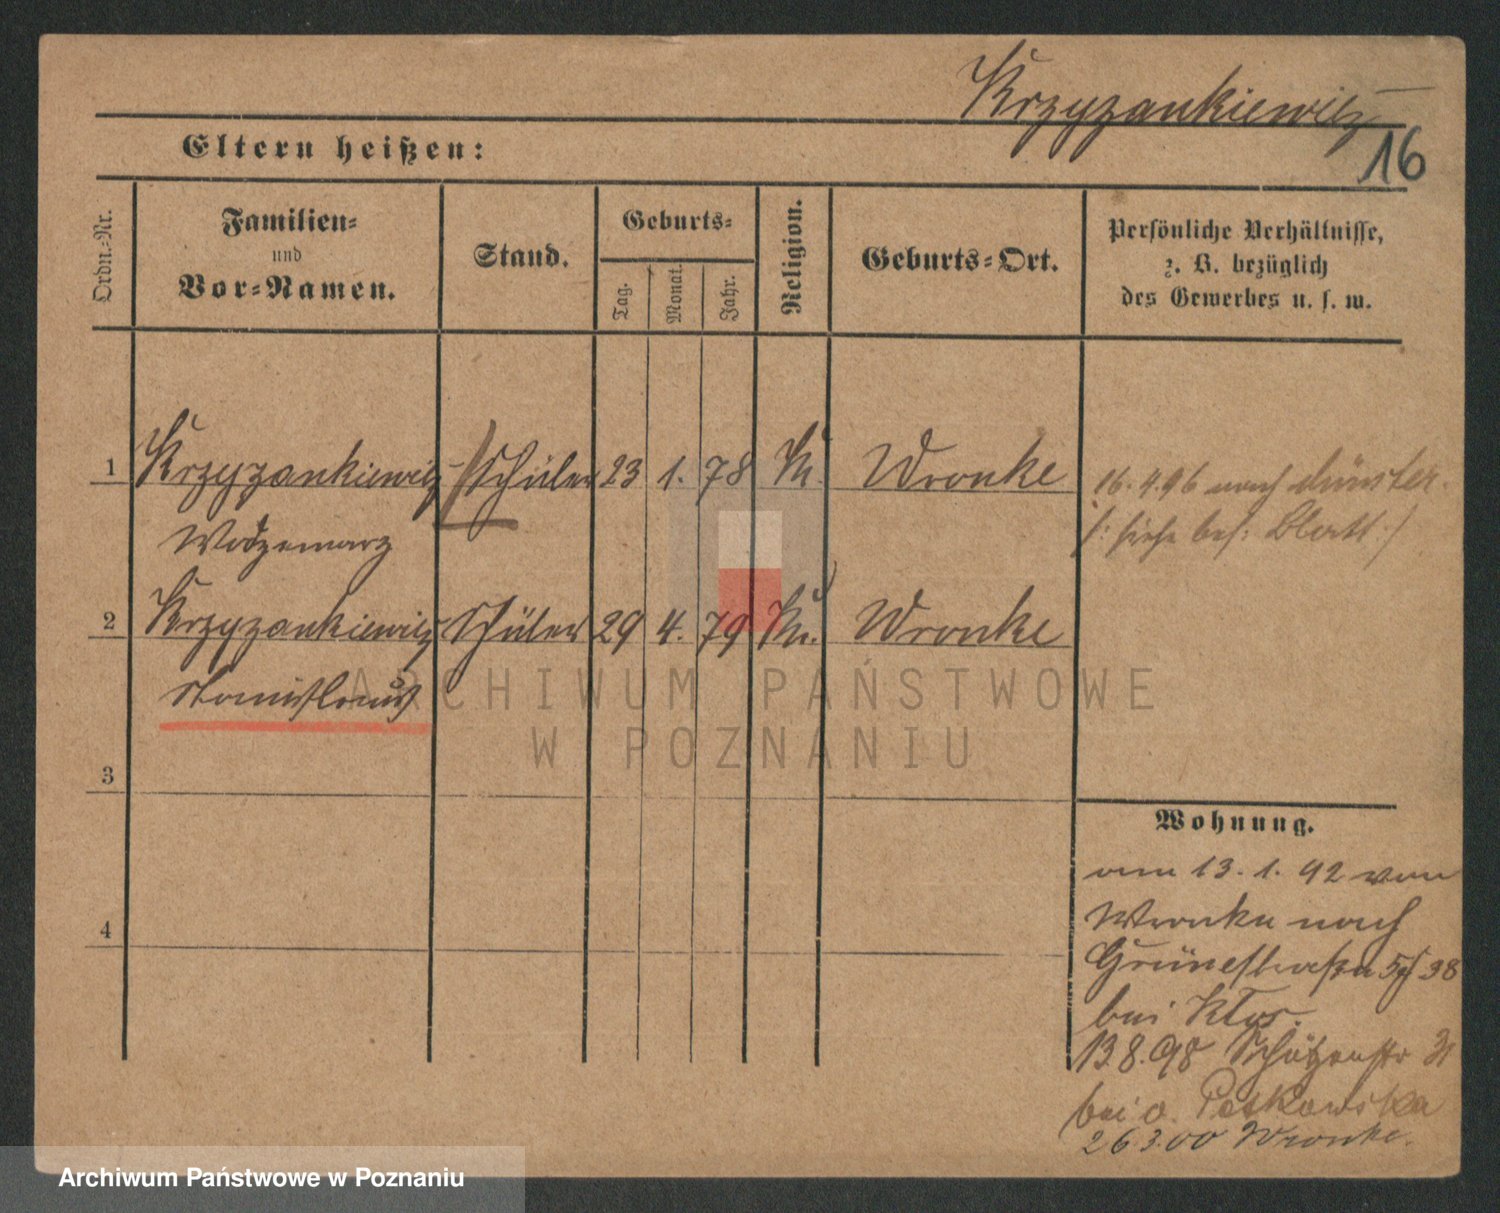 Krzyzankiewicz
16
Eltern heißen:
Ordn.-Nr.
Familien-
und
Vor-Namen.
Stand.
Geburts-
Tag.
Monat.
Jahr.
Religion.
Geburts-Ort.
Persönliche Verhältnisse,
z. B. bezüglich
des Gewerbes u. s. w.
1 Krzyzankiewicz Schüler 23 1. 78 K. Wronke
16.4.96 nach Münster.
/: siehe bes: Blatt :/
2 Krzyzankiewicz Schüler 29 4. 79 Wronke
Stanislaus
ARCHIWUM PAŃSTWOWE
W POZNANIU
3
4
Wohnung.
am 13.1.92 von
Wronke nach
Grünestraße 38
bei
13.8.98 Schützenstr
bei
26.3.00 Wronke.
Archiwum Państwowe w Poznaniu